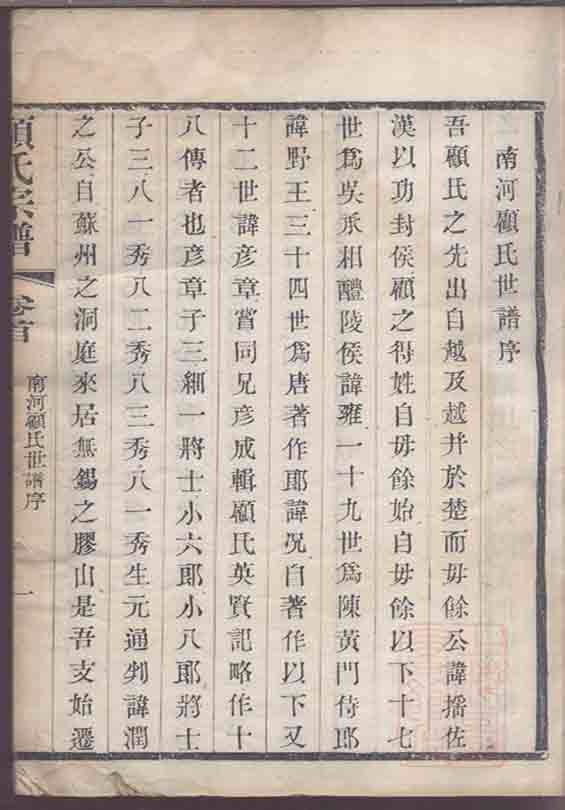 南河顧氏世譜序
吾顧氏之先出自越及越并於楚而毋餘公諱搖佐
漢以功封侯顧之得姓自毋餘始自毋餘以下十七
世爲吳丞相醴陵侯諱雍一十九世爲陳黃門侍郎
諱野王三十四世爲唐著作郎諱况自著作以下又
十二世諱彦章嘗同兄彦成輯顧氏英賢記略作十
八傳者也彦章子三細一將士小六郎小八郎將士
子三八一秀八二秀八三秀八一秀生元通判諱潤
之公自蘇州之洞庭來居無錫之膠山是吾支始遷
顧氏宗譜
卷首
南河顧氏世譜序
一